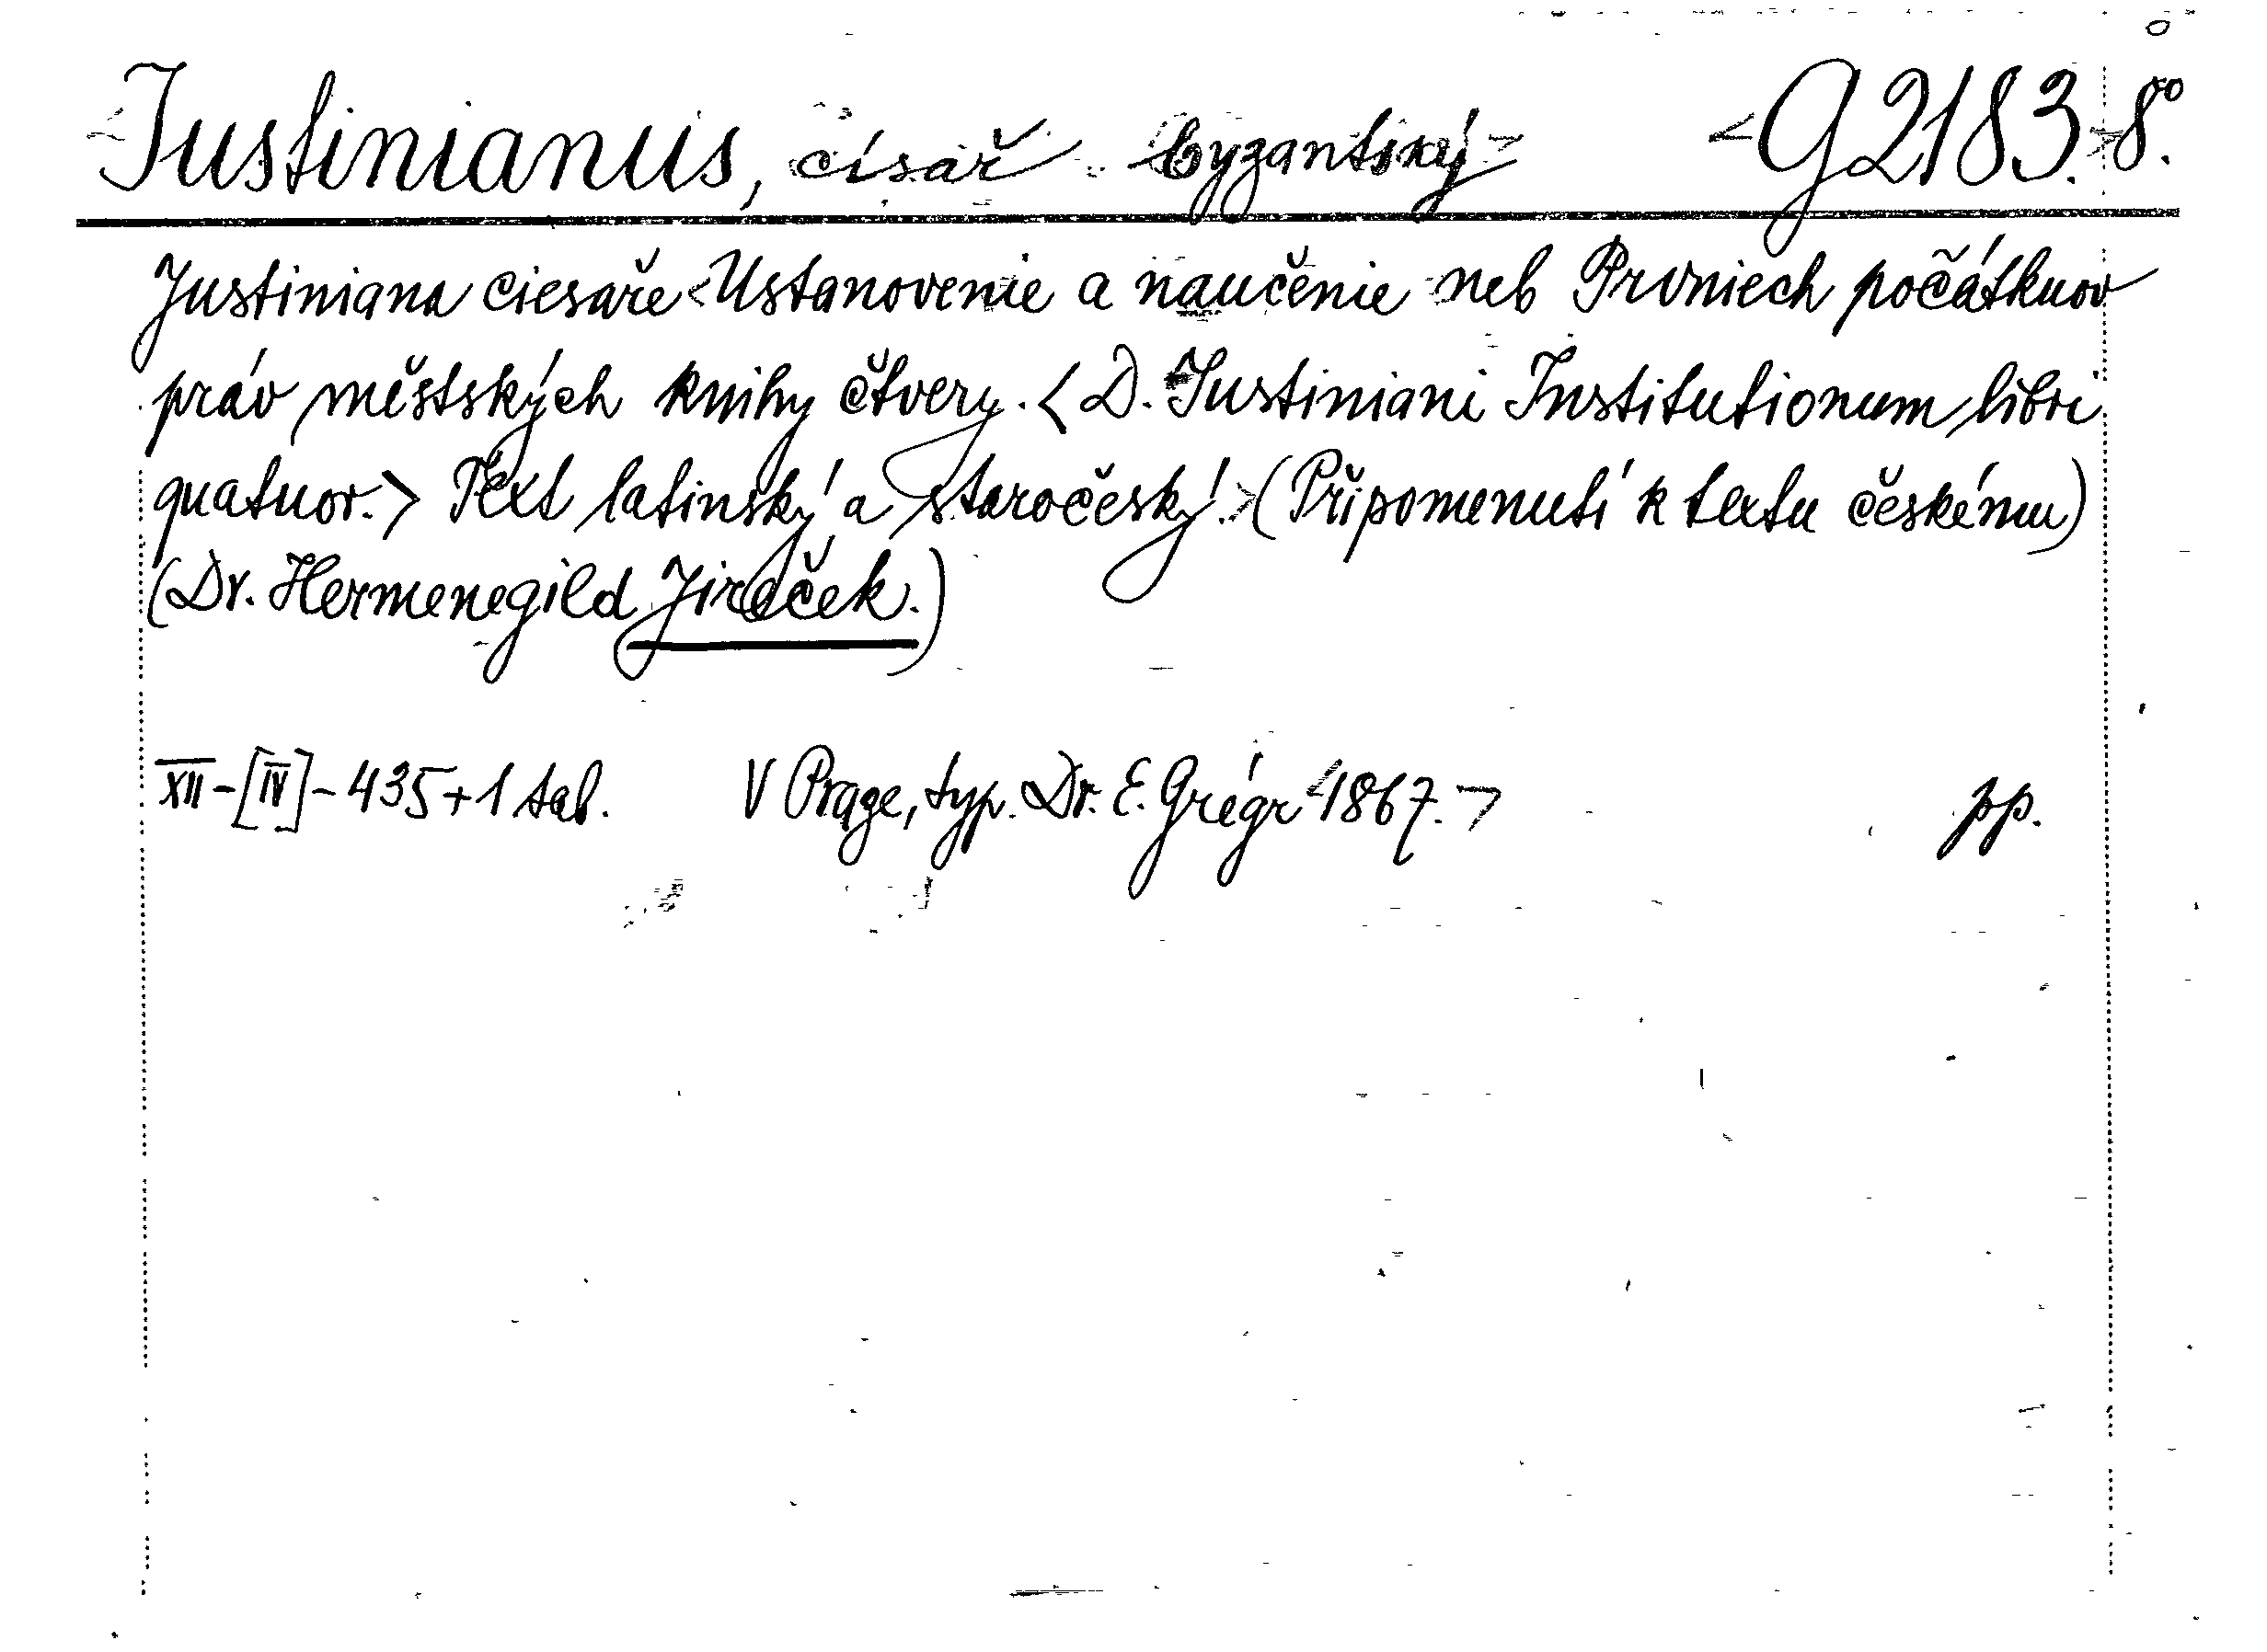 Iustinianus, císař byzantský <G 2183.> 8°.
Justiniana ciesaře <Ustanovenie a naučenie neb Prvniech počátkuov
práv městských knihy čtvery. <D. Iustiniani Institutionum libri
quatuor.> Text latinský a staročeský.> (Připomenutí k textu českému)
(Dr. Hermenegild Jireček.)
XII-[IV]-435+1 tab. V Praze, typ. Dr. E. Grégr <1867.> pp.